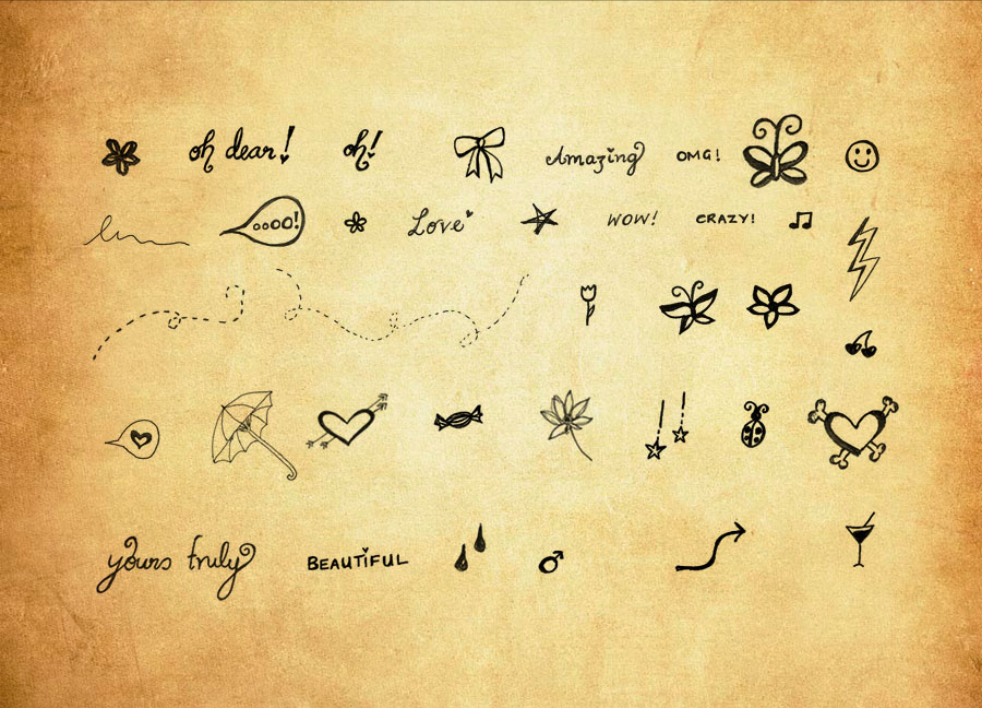 oh dear! oh! Amazing OMG!
oooo! Love WOW! CRAZY!
yours truly BEAUTIFUL